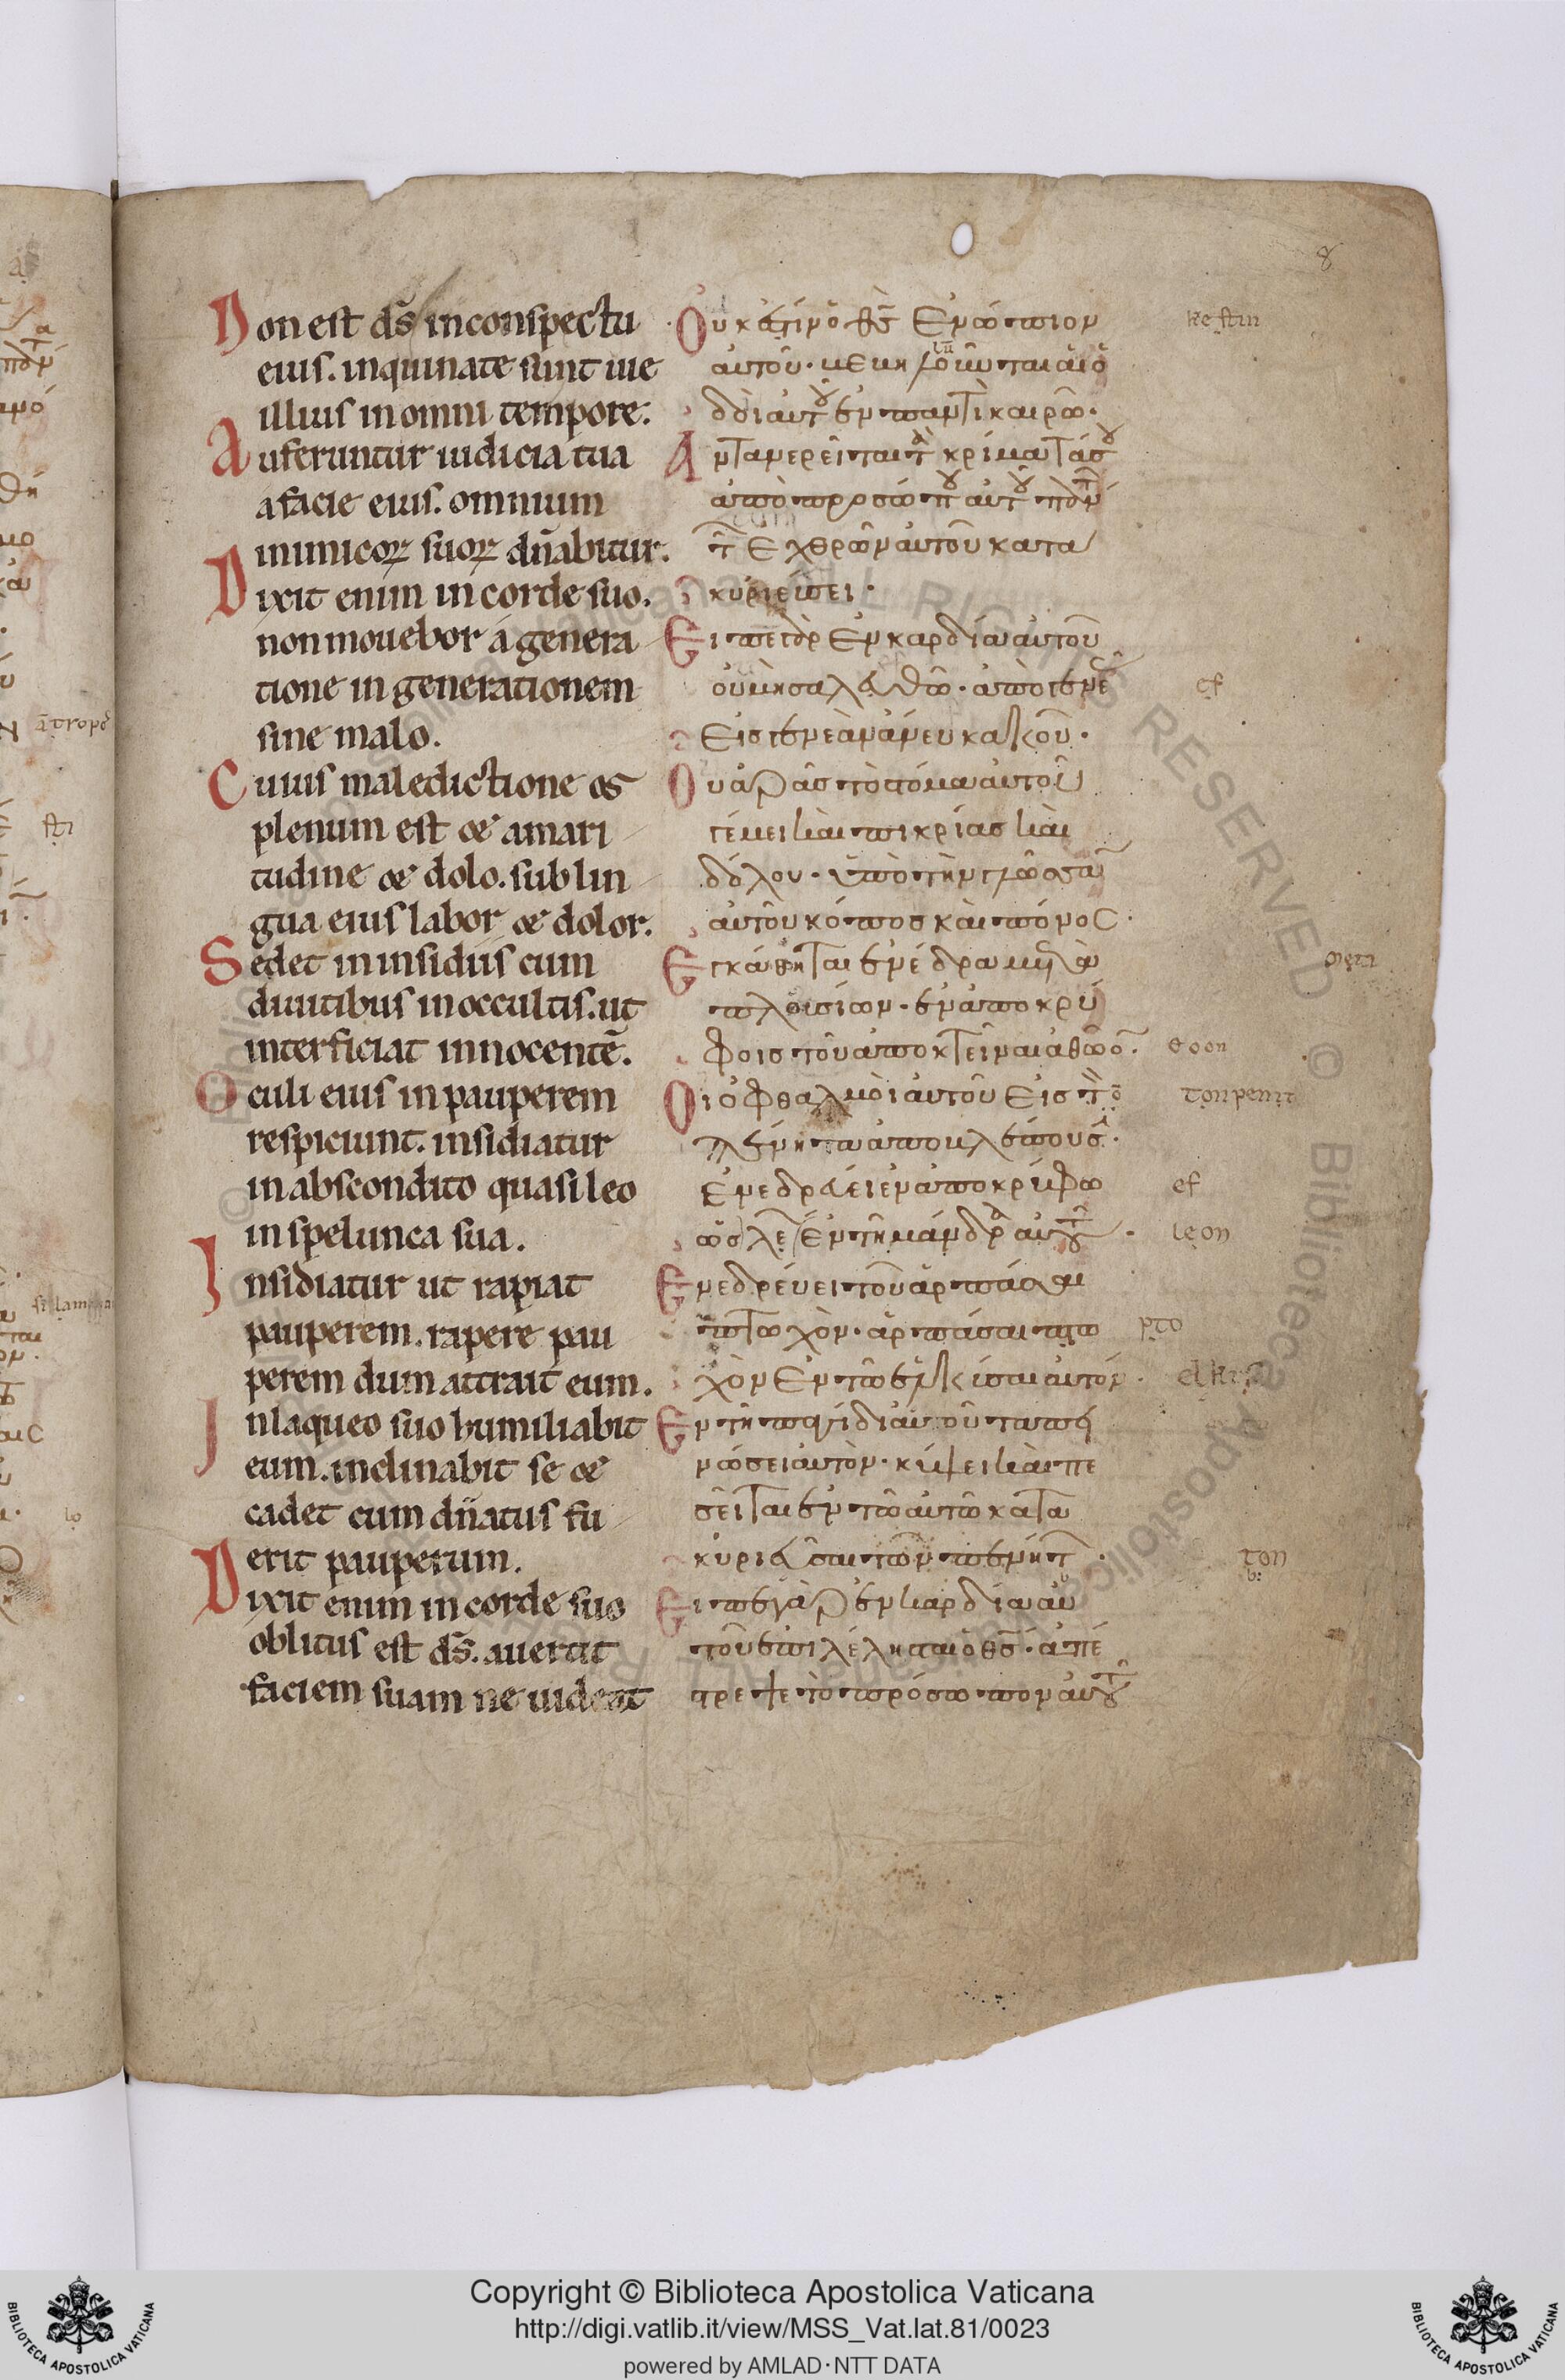 8
Non est dſ̄ in conspectu
eius. inquinate sunt uie
illius in omni tempore.
Auferuntur iudicia tua
a facie eius. omnium
inimicoꝝ suoꝝ dn̄abitur.
Dixit enim in corde suo.
non mouebor á genera
tione in generationem
sine malo.
Cuius maledictione os
plenum est & amari
tudine & dolo. sub lin
gua eius labor & dolor.
Sedet in insidiis cum
diuitibus in occultis. ut
interficiat innocentē.
Oculi eius in pauperem
respiciunt. insidiatur
in abscondito quasi leo
in spelunca sua.
Insidiatur ut rapiat
pauperem. rapere pau
perem dum attrait eum.
In laqueo suo humiliabit
eum. inclinabit se &
cadet cum dn̄atus fu
erit pauperum.
Dixit enim in corde suo
oblitus est dſ̄. auertit
faciem suam ne uideat
Ὀυκ ἔστιν ὁ θσ̄ Ἐνώπιον
αυτοῦ.
ἐν παντὶ καιρῶ.
Ανταναιρεῖται τὰ κρίματά σου
ἀπὸ προσώπου αυτοῦ πάντων
τῶν Ἐχθρῶν αυτοῦ κατα
κυριεύσει.
Ειπε γὰρ Ἐν καρδία αυτοῦ
οὐ μὴ σαλευθῶ. ἀπὸ γενεᾶς
Εἰς γενεὰν ἄνευ κακοῦ.
Οὗ ἀρᾶς τὸ στόμα αυτοῦ
γέμει καὶ πικρίας καὶ
δόλου. ὑπὸ τὴν γλῶσσαν
αυτοῦ κόπος καὶ πόνος.
Εγκάθηται ἐνέδρα μετὰ
πλουσίων. ἐν ἀποκρύ
φοις τοῦ ἀποκτεῖναι ἀθῶον.
Οἱ ὀφθαλμοὶ αυτοῦ Εἰς τὸν
πένητα ἀποβλέπουσι.
Ἐνεδρεύει ἐν ἀποκρύφω
ὡς λέων Ἐν τῆ μάνδρα αυτοῦ.
Ενεδρεύει τοῦ ἁρπάσαι
πτωχὸν. ἁρπάσαι πτω
χὸν Ἐν τῶ ἑλκύσαι αυτόν.
Εν τῆ παγίδι αυτοῦ ταπει
νώσει αυτὸν. κύψει καὶ πε
σεῖται ἐν τῶ αυτὸ κατα
κυριεῦσαι τῶν πενήτων.
Ειπε γὰρ ἐν καρδία αυ
τοῦ ἐπιλέλησται ὁ θσ̄. ἀπέ
στρεψε τὸ πρόσωπον αυτοῦ
ke stin
ef
meti
θoon
ton penit
ef
leon
pto
ton
Copyright © Biblioteca Apostolica Vaticana
http://digi.vatlib.it/view/MSS_Vat.lat.81/0023
powered by AMLAD·NTT DATA
BIBLIOTECA APOSTOLICA VATICANA
BIBLIOTECA APOSTOLICA VATICANA